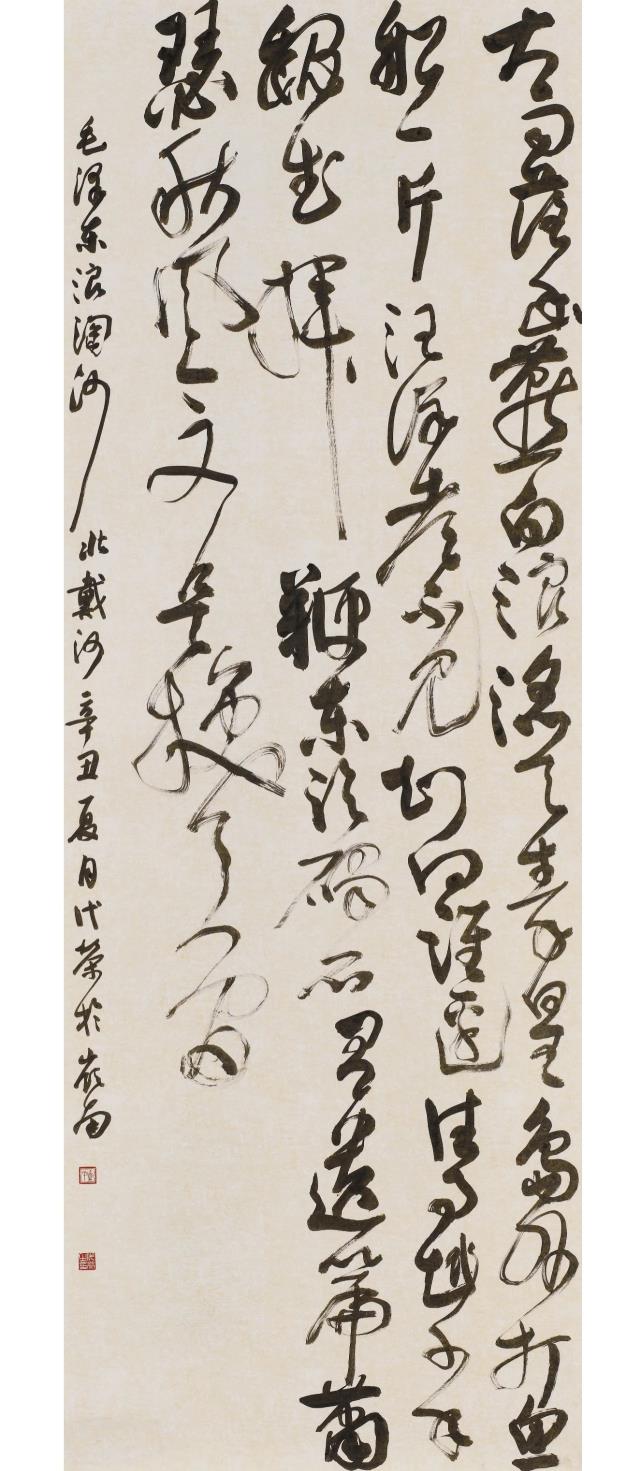 大雨落幽燕白浪滔天秦皇島外打魚
船一片汪洋都不見知向誰邊往事越千年
魏武揮鞭东临碣石有遺篇蕭
瑟秋风今又是换了人间
毛泽东浪淘沙 北戴河 辛丑夏月代荣於